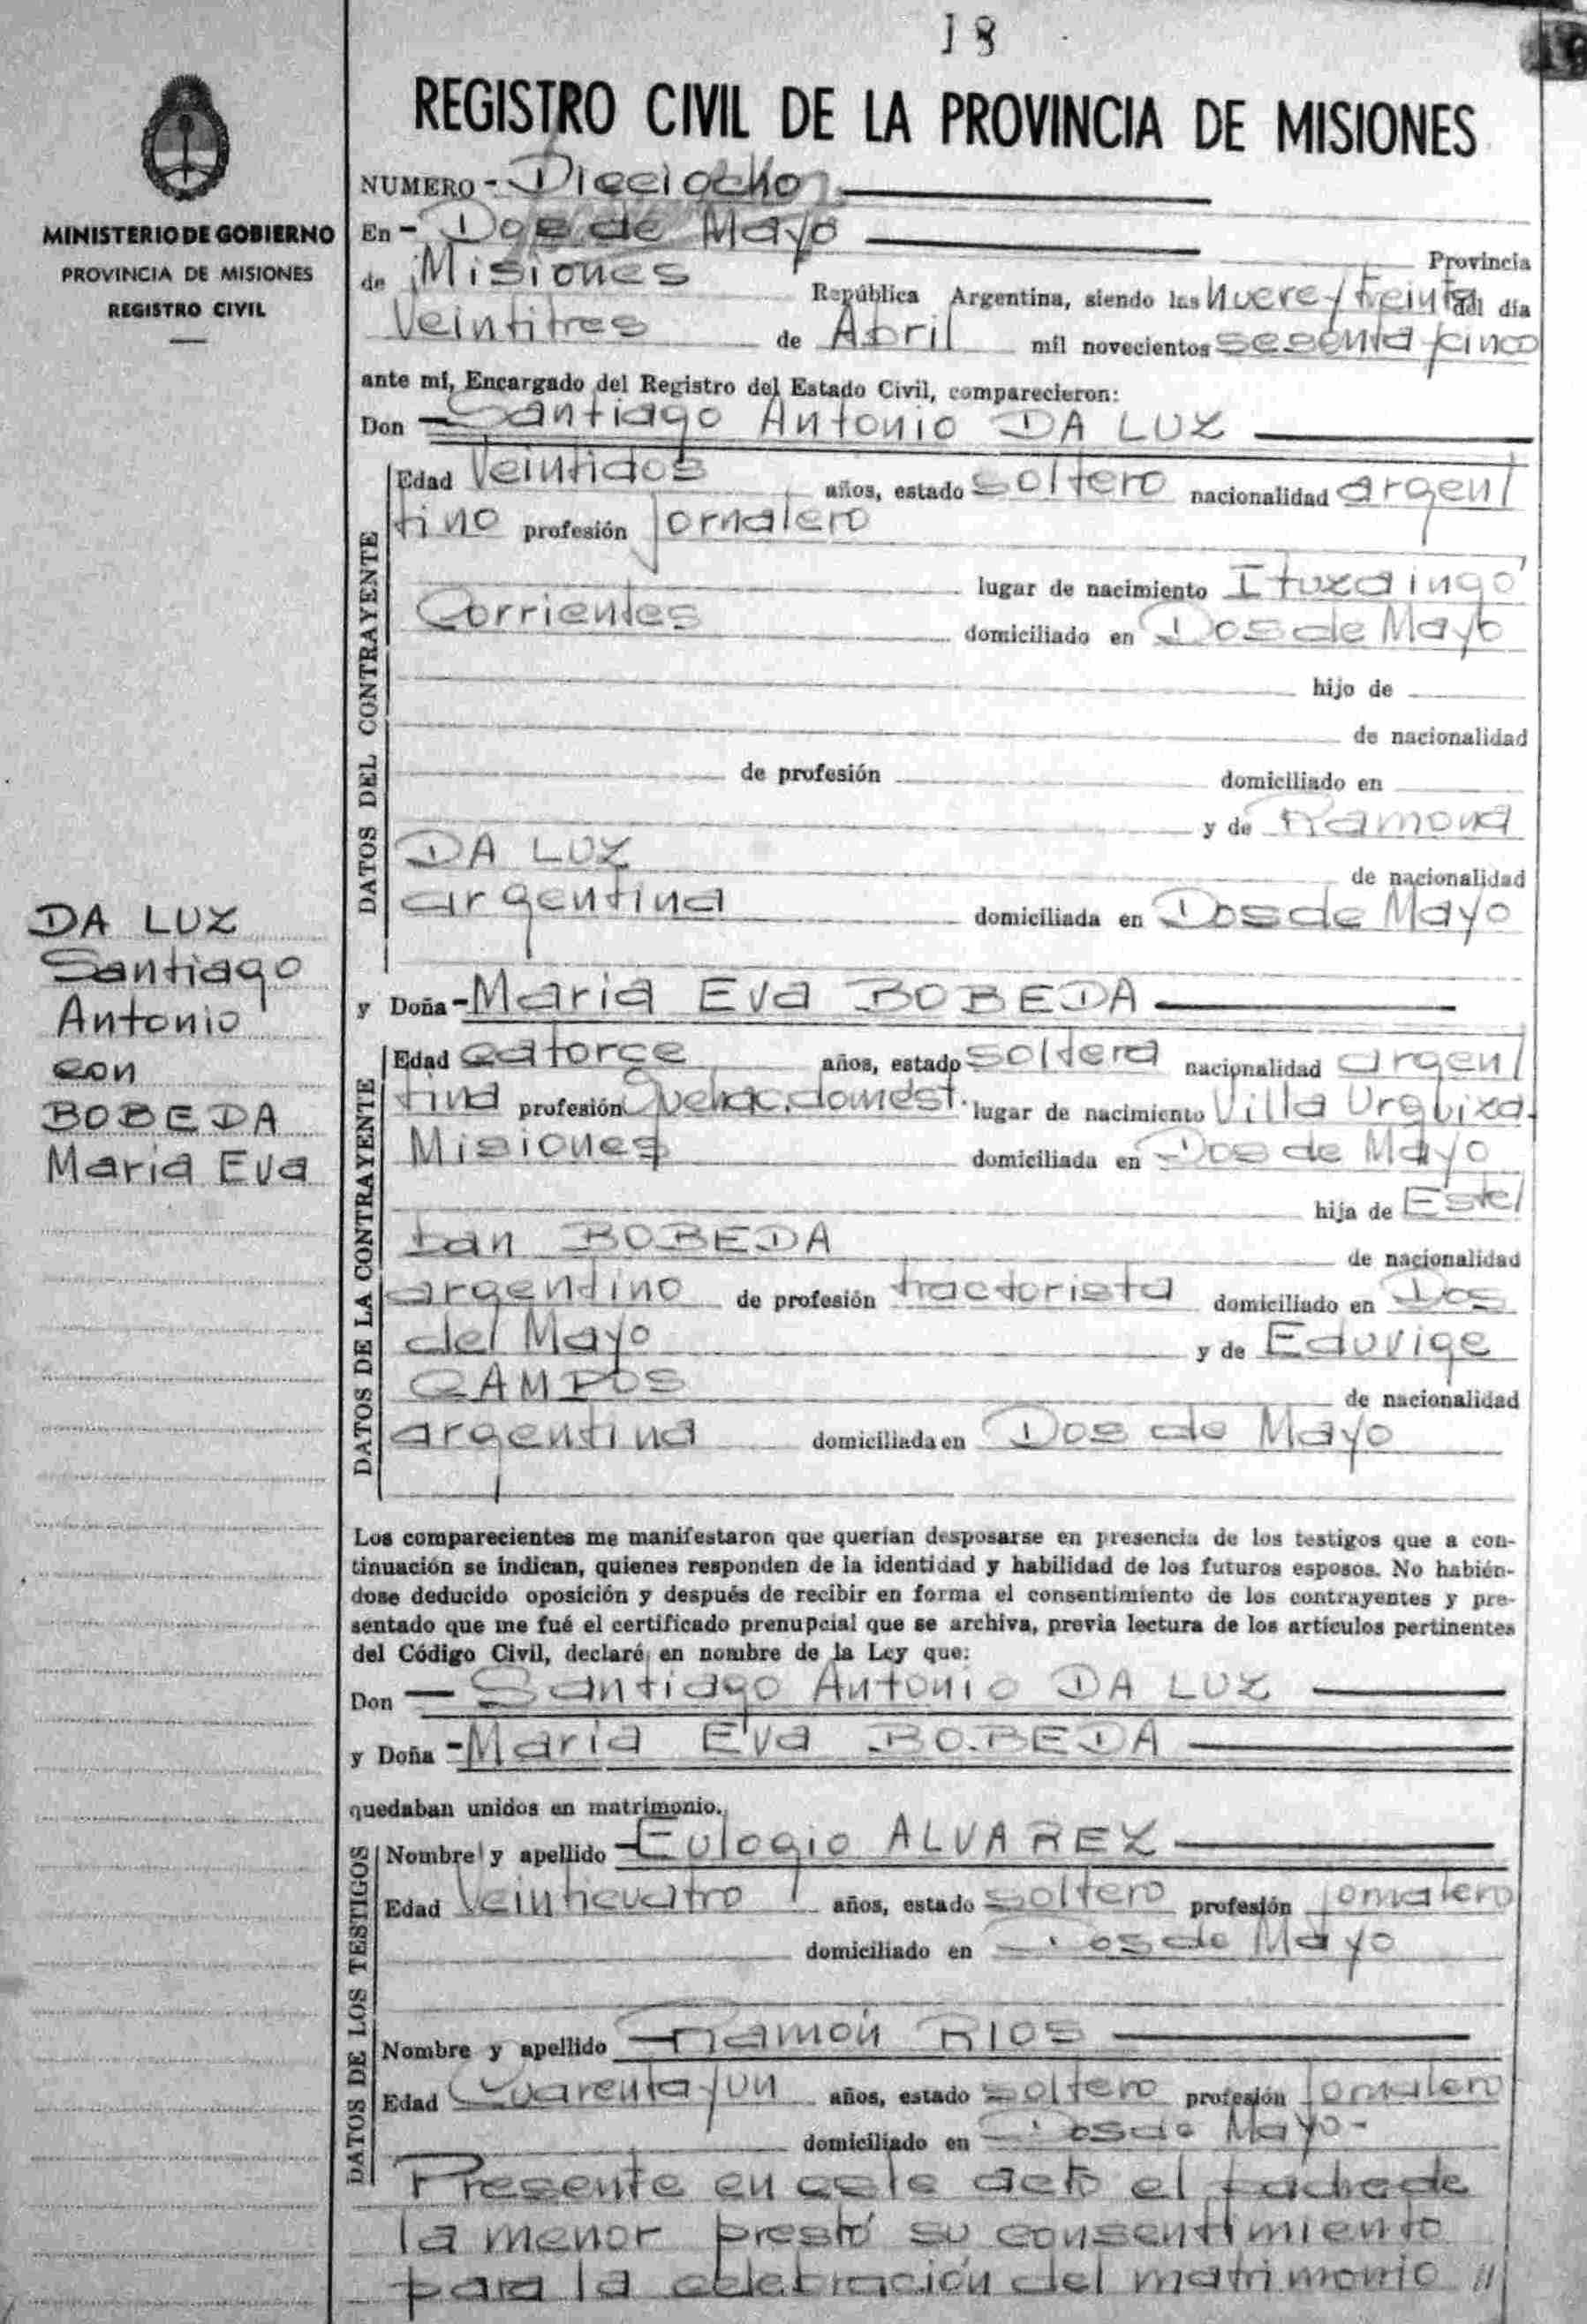 18
REGISTRO CIVIL DE LA PROVINCIA DE MISIONES
MINISTERIO DE GOBIERNO
PROVINCIA DE MISIONES
REGISTRO CIVIL
NUMERO - Dieciocho
En - Dos de Mayo Provincia
de Misiones República Argentina, siendo las nueve y treinta del día
Veintitres de Abril mil novecientos sesenta y cinco
ante mí, Encargado del Registro del Estado Civil, comparecieron:
Don - Santiago Antonio DA LUZ
DATOS DEL CONTRAYENTE
Edad Veintidos años, estado soltero nacionalidad argen/
tino profesión jornalero
lugar de nacimiento Ituzaingó
Corrientes domiciliado en Dos de Mayo
hijo de
de nacionalidad
de profesión domiciliado en
y de Ramona
DA LUZ de nacionalidad
argentina domiciliada en Dos de Mayo
DA LUZ
Santiago
Antonio
con
BOBEDA
Maria Eva
y Doña - Maria Eva BOBEDA
DATOS DE LA CONTRAYENTE
Edad catorce años, estado soltera nacionalidad argen/
tina profesión Quehac. domést. lugar de nacimiento Villa Urquiza.
Misiones domiciliada en Dos de Mayo
hija de Este/
ban BOBEDA de nacionalidad
argentino de profesión tractorista domiciliado en Dos
del Mayo y de Eduvige
CAMPOS de nacionalidad
argentina domiciliada en Dos de Mayo
Los comparecientes me manifestaron que querían desposarse en presencia de los testigos que a con-
tinuación se indican, quienes responden de la identidad y habilidad de los futuros esposos. No habién-
dose deducido oposición y después de recibir en forma el consentimiento de los contrayentes y pre-
sentado que me fué el certificado prenupcial que se archiva, previa lectura de los artículos pertinentes
del Código Civil, declaré en nombre de la Ley que:
Don - Santiago Antonio DA LUZ
y Doña - Maria Eva BOBEDA
quedaban unidos en matrimonio.
DATOS DE LOS TESTIGOS
Nombre y apellido - Eulogio ALVAREZ
Edad Veinticuatro años, estado soltero profesión jornalero
domiciliado en Dos de Mayo
Nombre y apellido - Ramón RIOS
Edad Cuarenta y un años, estado soltero profesión jornalero
domiciliado en Dos de Mayo-
Presente en este acto el padre de
la menor prestó su consentimiento
para la celebración del matrimonio //